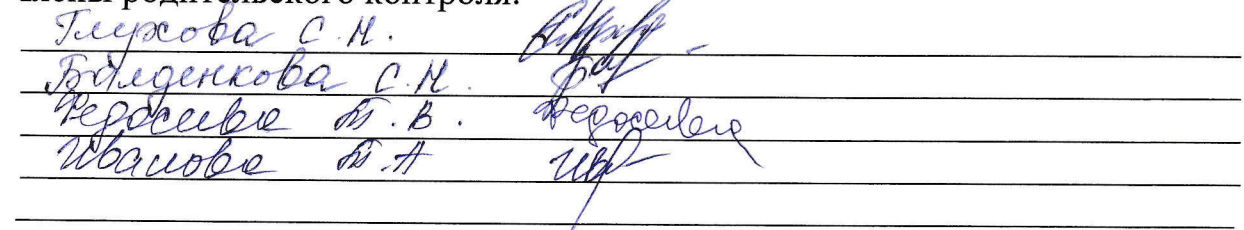 члены родительского контроля:
Глухова С.Н.
Балденкова С.Н.
Федосеева Т.В. Федосеева
Иванова Т.А